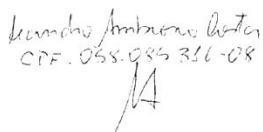 Leandro Ambrosio Costa
CPF. 058.085 316-08